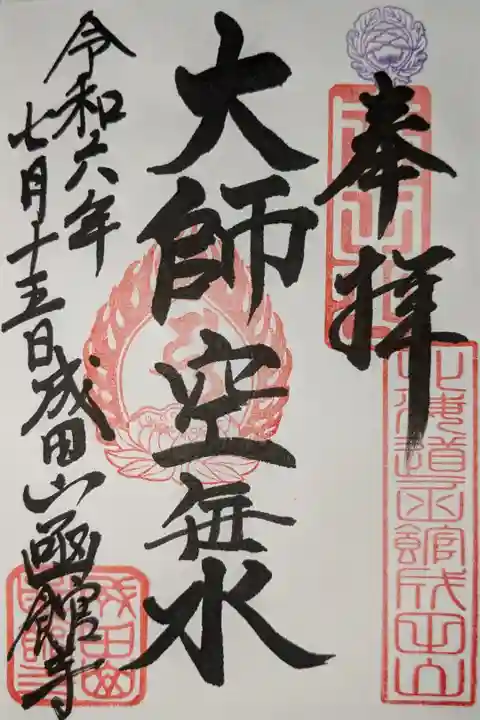 奉拝
北海道函館成田山
大師空海水
令和六年
七月十五日成田山函館寺
成田山函館寺